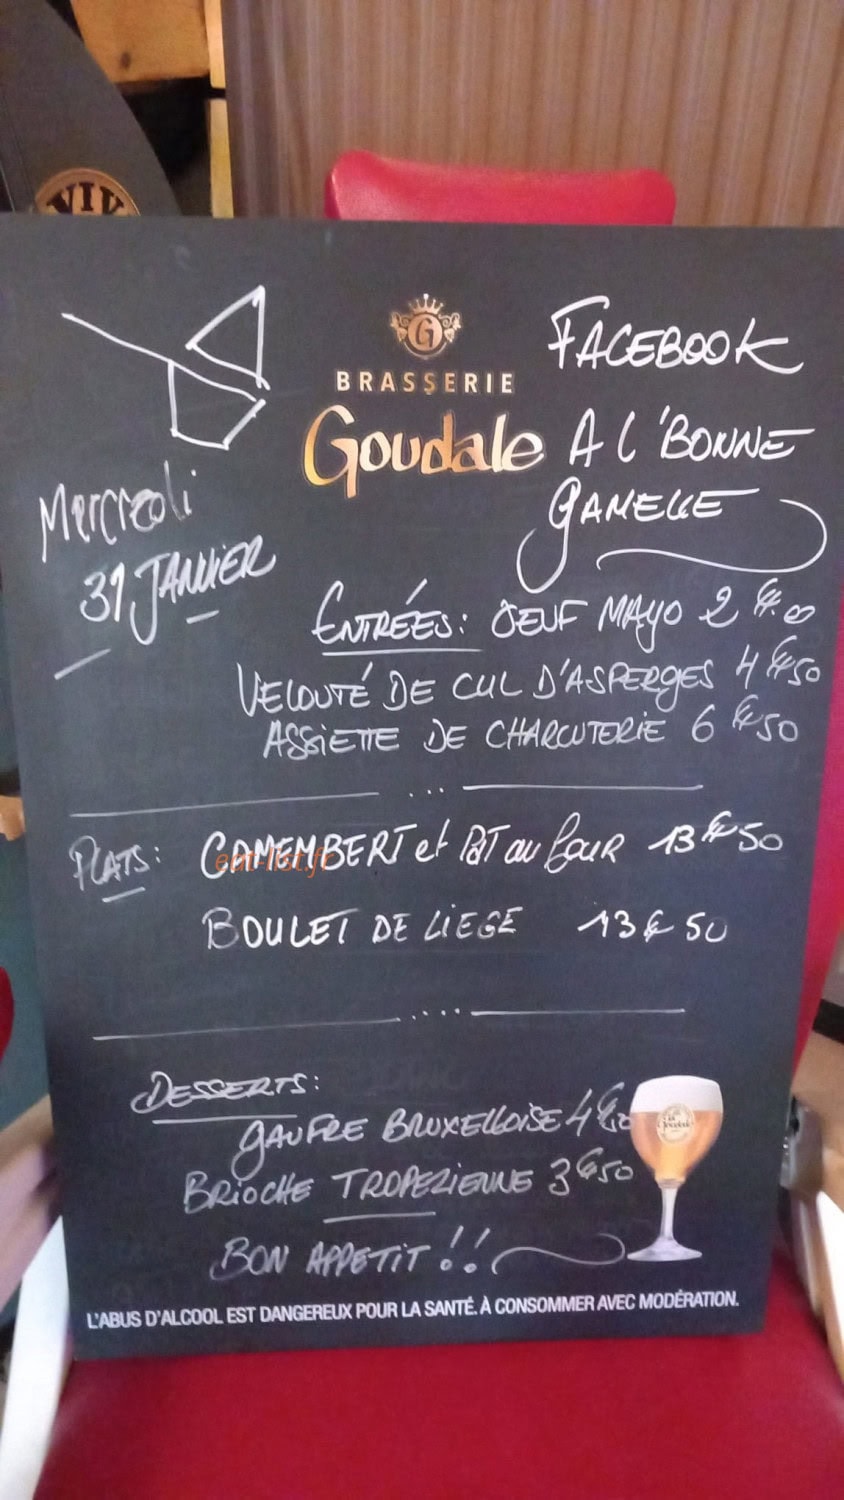 VIK
G
BRASSERIE
Goudale
FACEBOOK
A l'BONNE
GAMELLE
Mercredi
31 JANVIER
ENTRÉES: OEUF MAYO 2€.00
VELOUTÉ DE CUL D'ASPERGES 4€50
ASSIETTE DE CHARCUTERIE 6€50
...
PLATS: CAMEMBERT et PDT au four 13€50
eat-list.fr
BOULET DE LIEGE 13€50
.....
DESSERTS:
GAUFRE BRUXELLOISE 4€
BRIOCHE TROPEZIENNE 3€50
Goudale
BON APPETIT !!
L'ABUS D'ALCOOL EST DANGEREUX POUR LA SANTÉ. À CONSOMMER AVEC MODÉRATION.